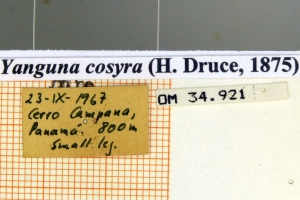 Yanguna cosyra (H. Druce, 1875)
23-IX-1967
Cerro Campana,
Panamá. 800m
Small leg.
OM 34.921